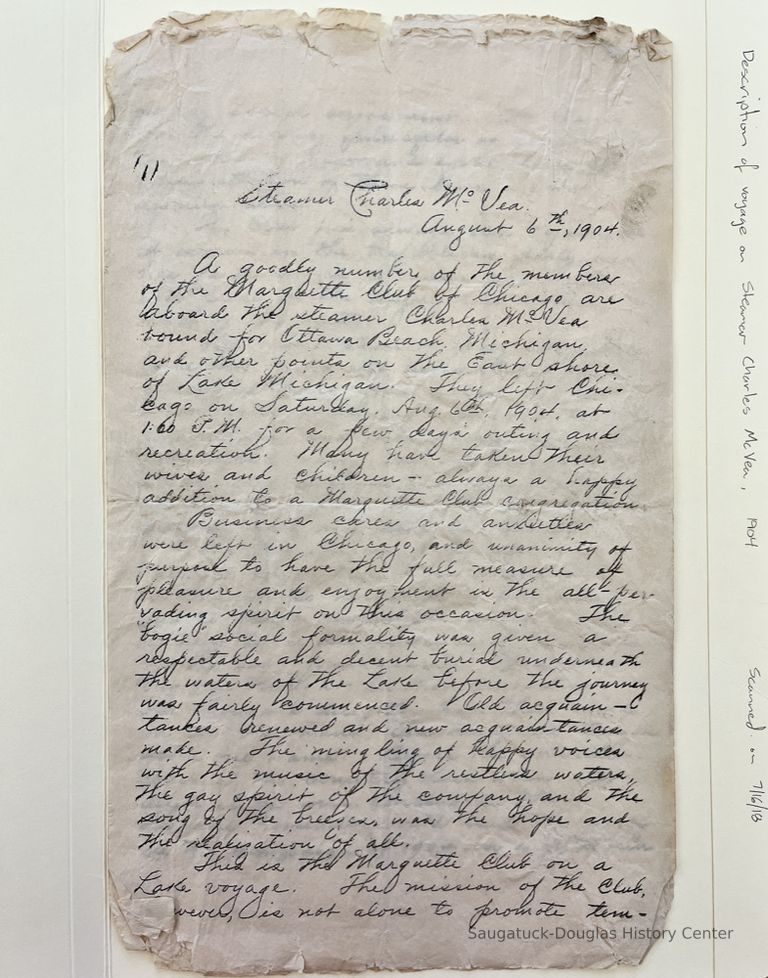 (1)
Steamer Charles McVea.
August 6th, 1904.
A goodly number of the members
of the Marquette Club of Chicago are
aboard the steamer Charles McVea
bound for Ottawa Beach, Michigan,
and other points on the East shore
of Lake Michigan. They left Chi-
cago on Saturday, Aug. 6th, 1904, at
1:00 P.M. for a few days outing and
recreation. Many have taken their
wives and children - always a happy
addition to a Marquette Club congregation.
Business cares and anxieties
were left in Chicago, and unanimity of
purpose to have the full measure of
pleasure and enjoyment is the all-per-
vading spirit on this occasion. The
"bogie" social formality was given a
respectable and decent burial underneath
the waters of the Lake before the journey
was fairly commenced. Old acquain-
tances renewed and new acquaintances
made. The mingling of happy voices
with the music of the restless waters,
the gay spirit of the company, and the
song of the breezes, was the hope and
the realisation of all.
This is the Marquette Club on a
Lake voyage. The mission of the Club,
wever, is not alone to promote tem-
Description of voyage on Steamer Charles McVea, 1904
Scanned on 7/16/18
Saugatuck-Douglas History Center